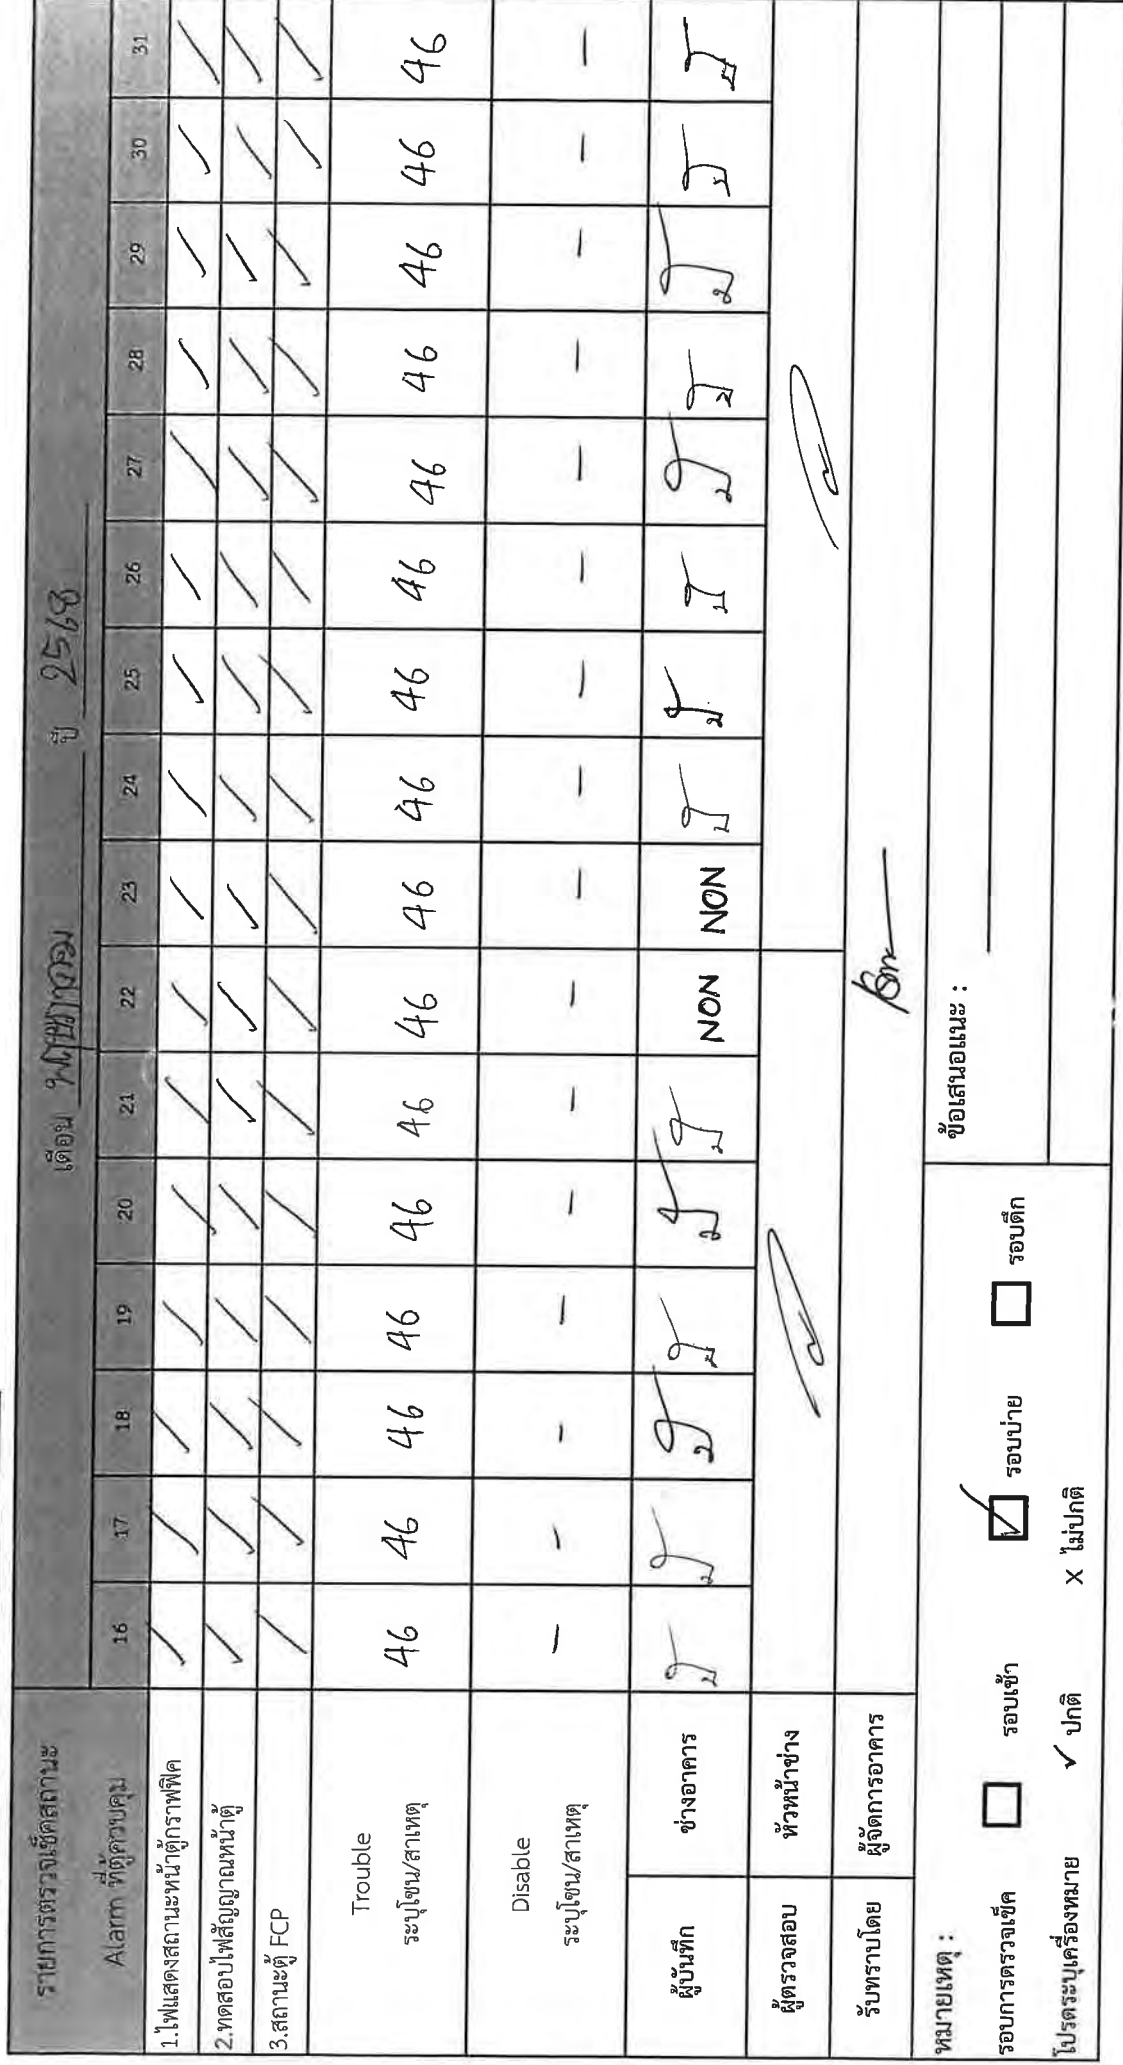 รายการตรวจเช็คสถานะ
Alarm ที่ตู้ควบคุม
เดือน พฤษภาคม ปี 2568
16 17 18 19 20 21 22 23 24 25 26 27 28 29 30 31
1.ไฟแสดงสถานะหน้าตู้กราฟฟิค / / / / / / / / / / / / / / / /
2.ทดสอบไฟสัญญาณหน้าตู้ / / / / / / / / / / / / / / / /
3.สถานะตู้ FCP / / / / / / / / / / / / / / / /
Trouble
ระบุโซน/สาเหตุ
46 46 46 46 46 46 46 46 46 46 46 46 46 46 46 46
Disable
ระบุโซน/สาเหตุ
- - - - - - - - - - - - - - - -
ผู้บันทึก ช่างอาคาร NON NON
ผู้ตรวจสอบ หัวหน้าช่าง
รับทราบโดย ผู้จัดการอาคาร
หมายเหตุ : ข้อเสนอแนะ :
รอบการตรวจเช็ค ☐ รอบเช้า ☑ รอบบ่าย ☐ รอบดึก
โปรดระบุเครื่องหมาย ✓ ปกติ x ไม่ปกติ